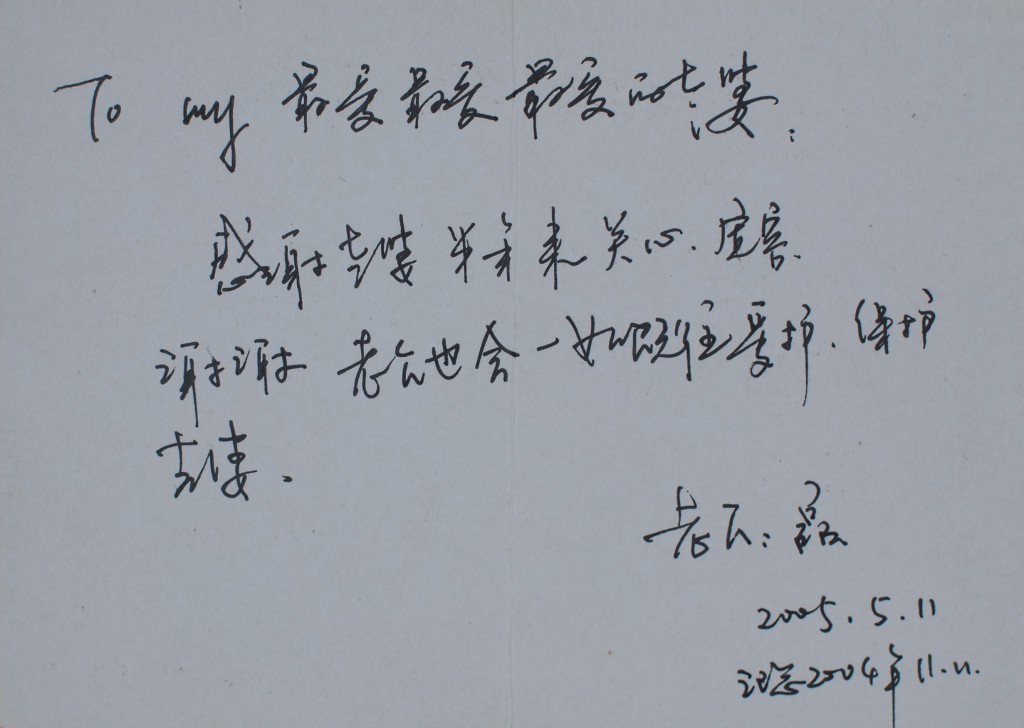 To my 最爱最爱最爱的老婆:
感谢老婆半年来关心、宽容、
谢谢 老公也会一如既往爱护、保护
老婆.
老公: 磊
2005.5.11
记念2004年11.11.